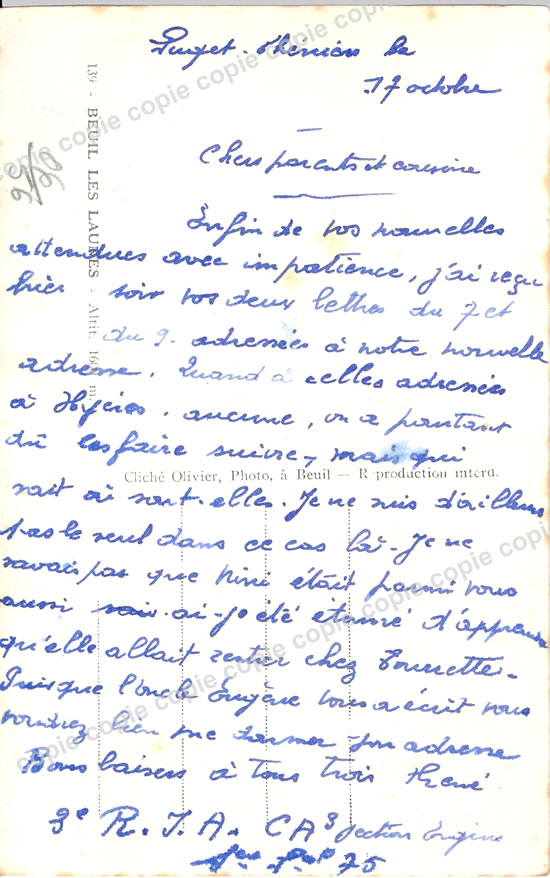 Puget-Théniers le
17 octobre
Chers parents et cousine
Enfin de vos nouvelles
attendues avec impatience, j'ai reçu
hier soir vos deux lettres du 7 et
du 9. adressées à notre nouvelle
adresse. Quand à celles adressées
à Hyères, aucune, on a pourtant
dû les faire suivre, mais qui
sait où sont-elles. Je ne suis d'ailleurs
pas le seul dans ce cas là. Je ne
savais pas que Nini était parmi vous
aussi ai-je été étonné d'apprendre
qu'elle allait rentrer chez
Puisque l'oncle Eugène vous a écrit vous
voudrez bien me donner son adresse
Bons baisers à tous trois René
3e R.I.A. CA3 section Engins
75
139 - BEUIL LES LAUNES - Altit. m.
Cliché Olivier, Photo, à Beuil — R production interd.
25/90
copie copie copie copie copie copie
copie copie copie copie copie copie